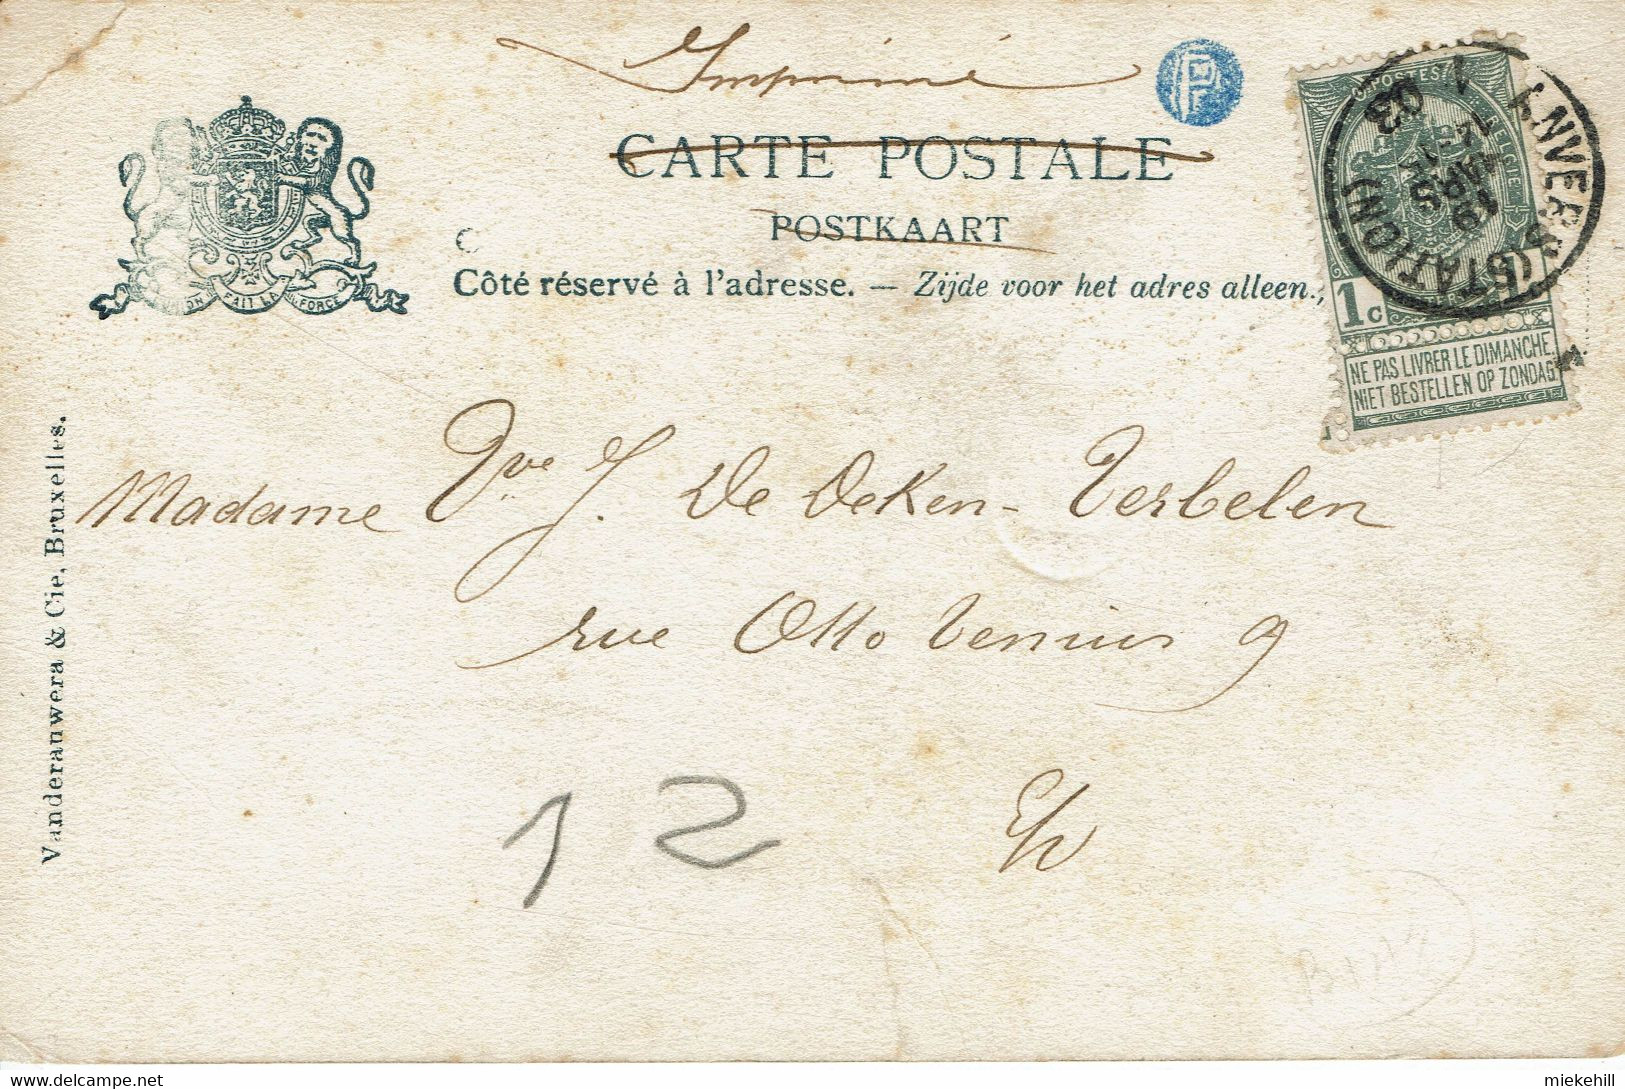 Imprimé
CARTE POSTALE
POSTKAART
Côté réservé à l'adresse. — Zijde voor het adres alleen.
L'UNION FAIT LA FORCE
POSTES BELGIQUE
1 c
NE PAS LIVRER LE DIMANCHE
NIET BESTELLEN OP ZONDAG
ANVERS (STATION)
19 MARS
03
Madame Vve J. De Deken-Verbelen
rue Otto Venius 9
E/V
12
Vanderauwera & Cie, Bruxelles.
delcampe.net
miekehill